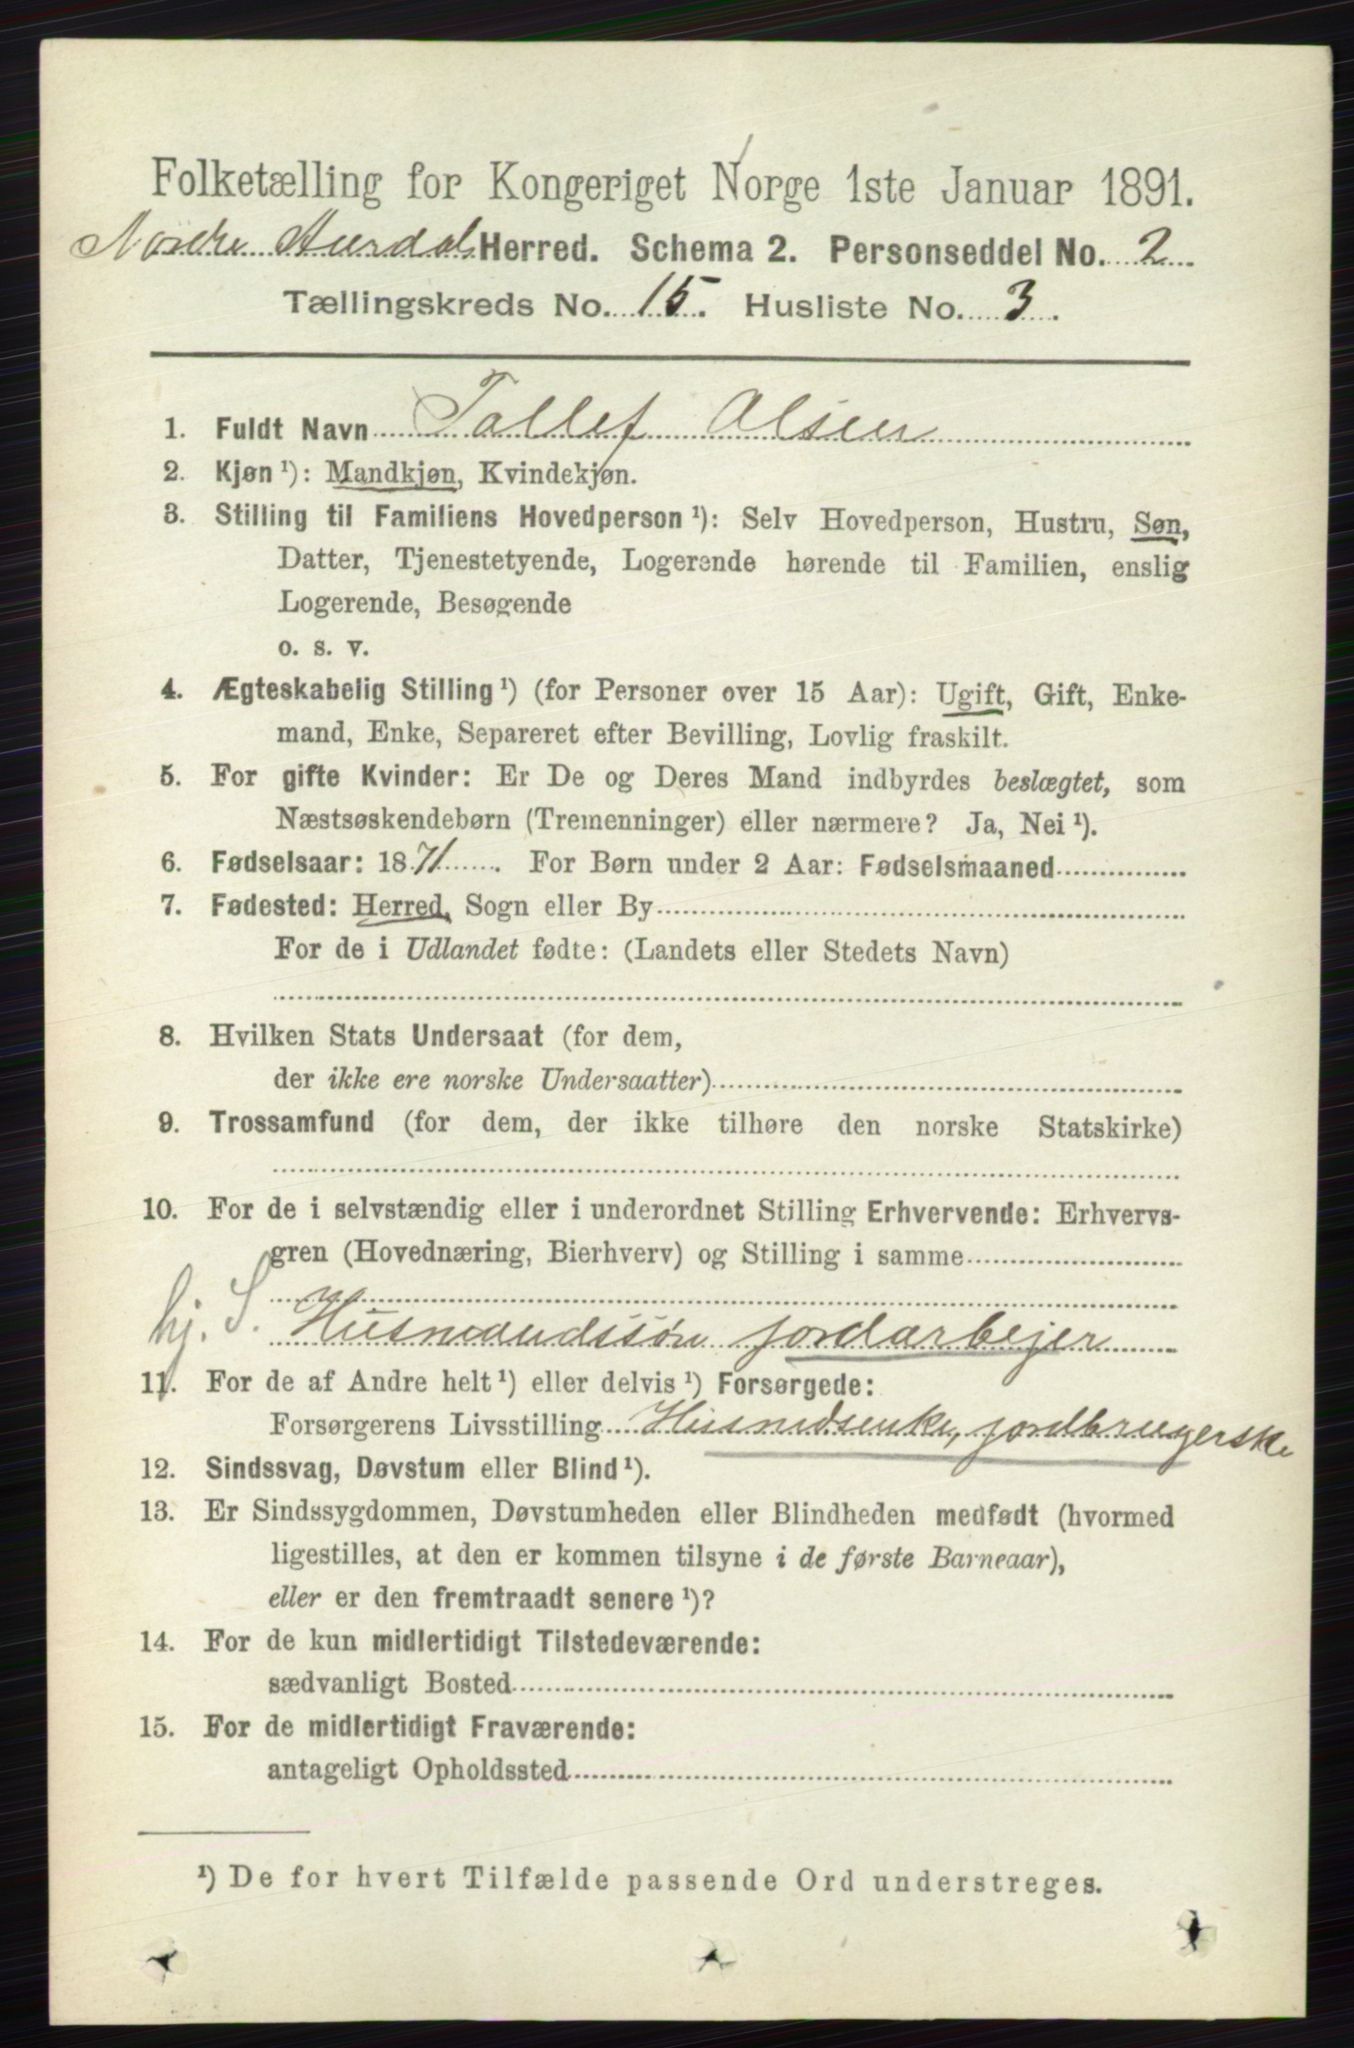 Folketælling for Kongeriget Norge 1ste Januar 1891.
Nordre Aurdal Herred. Schema 2. Personseddel No. 2
Tællingskreds No. 15. Husliste No. 3.
1. Fuldt Navn Tollef Olsen
2. Kjøn ¹): Mandkjøn, Kvindekjøn.
3. Stilling til Familiens Hovedperson ¹): Selv Hovedperson, Hustru, Søn,
Datter, Tjenestetyende, Logerende hørende til Familien, enslig
Logerende, Besøgende
o. s. v.
4. Ægteskabelig Stilling ¹) (for Personer over 15 Aar): Ugift, Gift, Enke-
mand, Enke, Separeret efter Bevilling, Lovlig fraskilt.
5. For gifte Kvinder: Er De og Deres Mand indbyrdes beslægtet, som
Næstsøskendebørn (Tremenninger) eller nærmere? Ja, Nei ¹).
6. Fødselsaar: 1871. For Børn under 2 Aar: Fødselsmaaned
7. Fødested: Herred, Sogn eller By
For de i Udlandet fødte: (Landets eller Stedets Navn)
8. Hvilken Stats Undersaat (for dem,
der ikke ere norske Undersaatter)
9. Trossamfund (for dem, der ikke tilhøre den norske Statskirke)
10. For de i selvstændig eller i underordnet Stilling Erhvervende: Erhvervs-
gren (Hovednæring, Bierhverv) og Stilling i samme
hj. S. Husmandssøn jordarbejer
11. For de af Andre helt ¹) eller delvis ¹) Forsørgede:
Forsørgerens Livsstilling Husmdsenke, jordbrugerske
12. Sindssvag, Døvstum eller Blind ¹).
13. Er Sindssygdommen, Døvstumheden eller Blindheden medfødt (hvormed
ligestilles, at den er kommen tilsyne i de første Barneaar),
eller er den fremtraadt senere ¹)?
14. For de kun midlertidigt Tilstedeværende:
sædvanligt Bosted
15. For de midlertidigt Fraværende:
antageligt Opholdssted
¹) De for hvert Tilfælde passende Ord understreges.